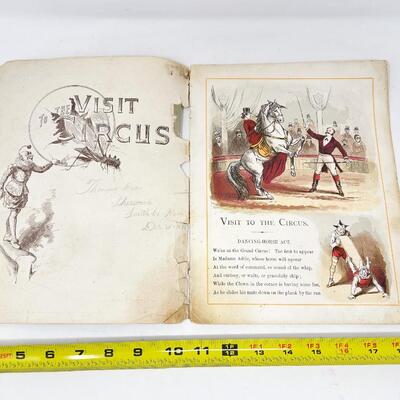 VISIT
TO THE
CIRCUS
VISIT TO THE CIRCUS.
DANCING-HORSE ACT.
We're at the Grand Circus! The first to appear
Is Madame Adèle, whose horse will uprear
At the word of command, or sound of the whip,
And curtsey, or waltz, or gracefully skip;
While the Clown in the corner is having some fun,
As he slides his mate down on the plank by the run
5 6 7 8 9 10 11 1F 13 14 15 16 17
12
1F 1F 2F 1F 3F 1F 4F 1F 5F